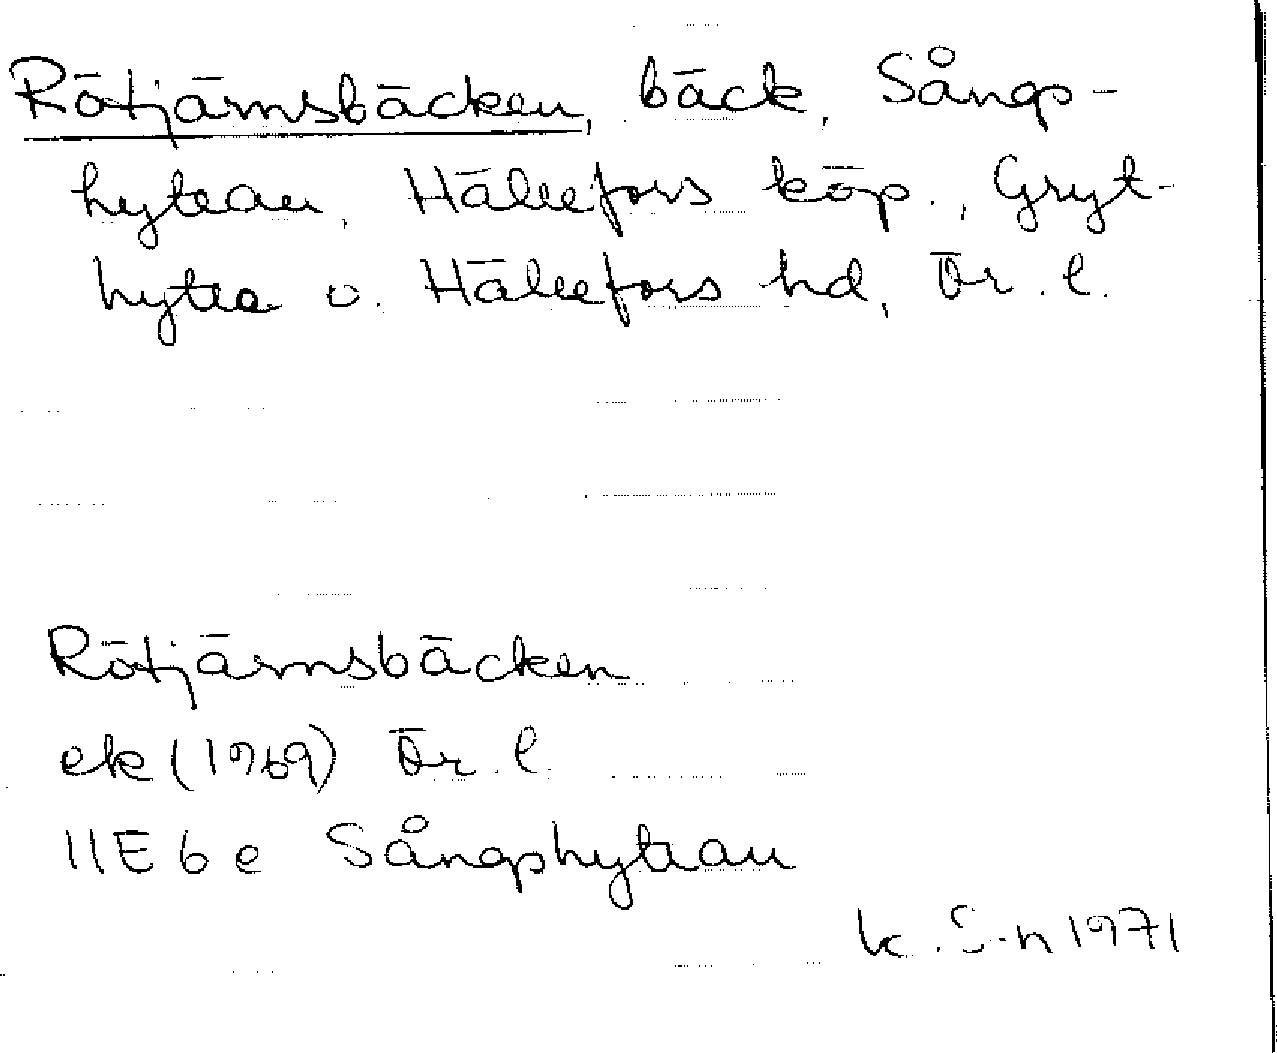 Rötjärnsbäcken, bäck, Sångs-
hyttan, Hällefors köp., Gryt-
hytte o. Hällefors hd, Ör. l.
Rötjärnsbäcken
ek (1969) Ör. l.
11E 6 e Sångshyttan
K. S-n 1971